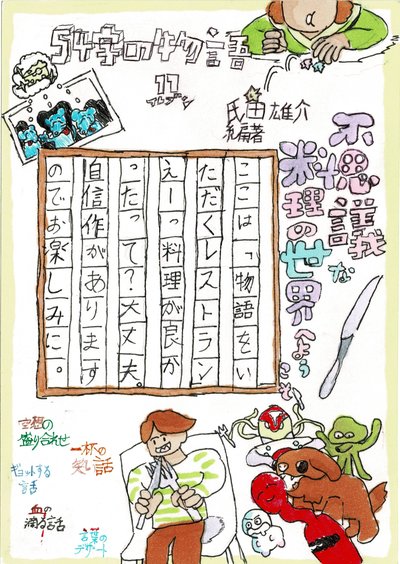 54字の物語
11
イレブン
氏田雄介
編著
不思議な
料理の世界へようこそ
ここは「物語をい
ただくレストラン
えーっ料理が良か
ったって?大丈夫。
自信作があります
のでお楽しみに。
空想の
盛り合わせ
一杯の
笑い話
ギョッとする
話
血の
滴る話
言葉の
デザート